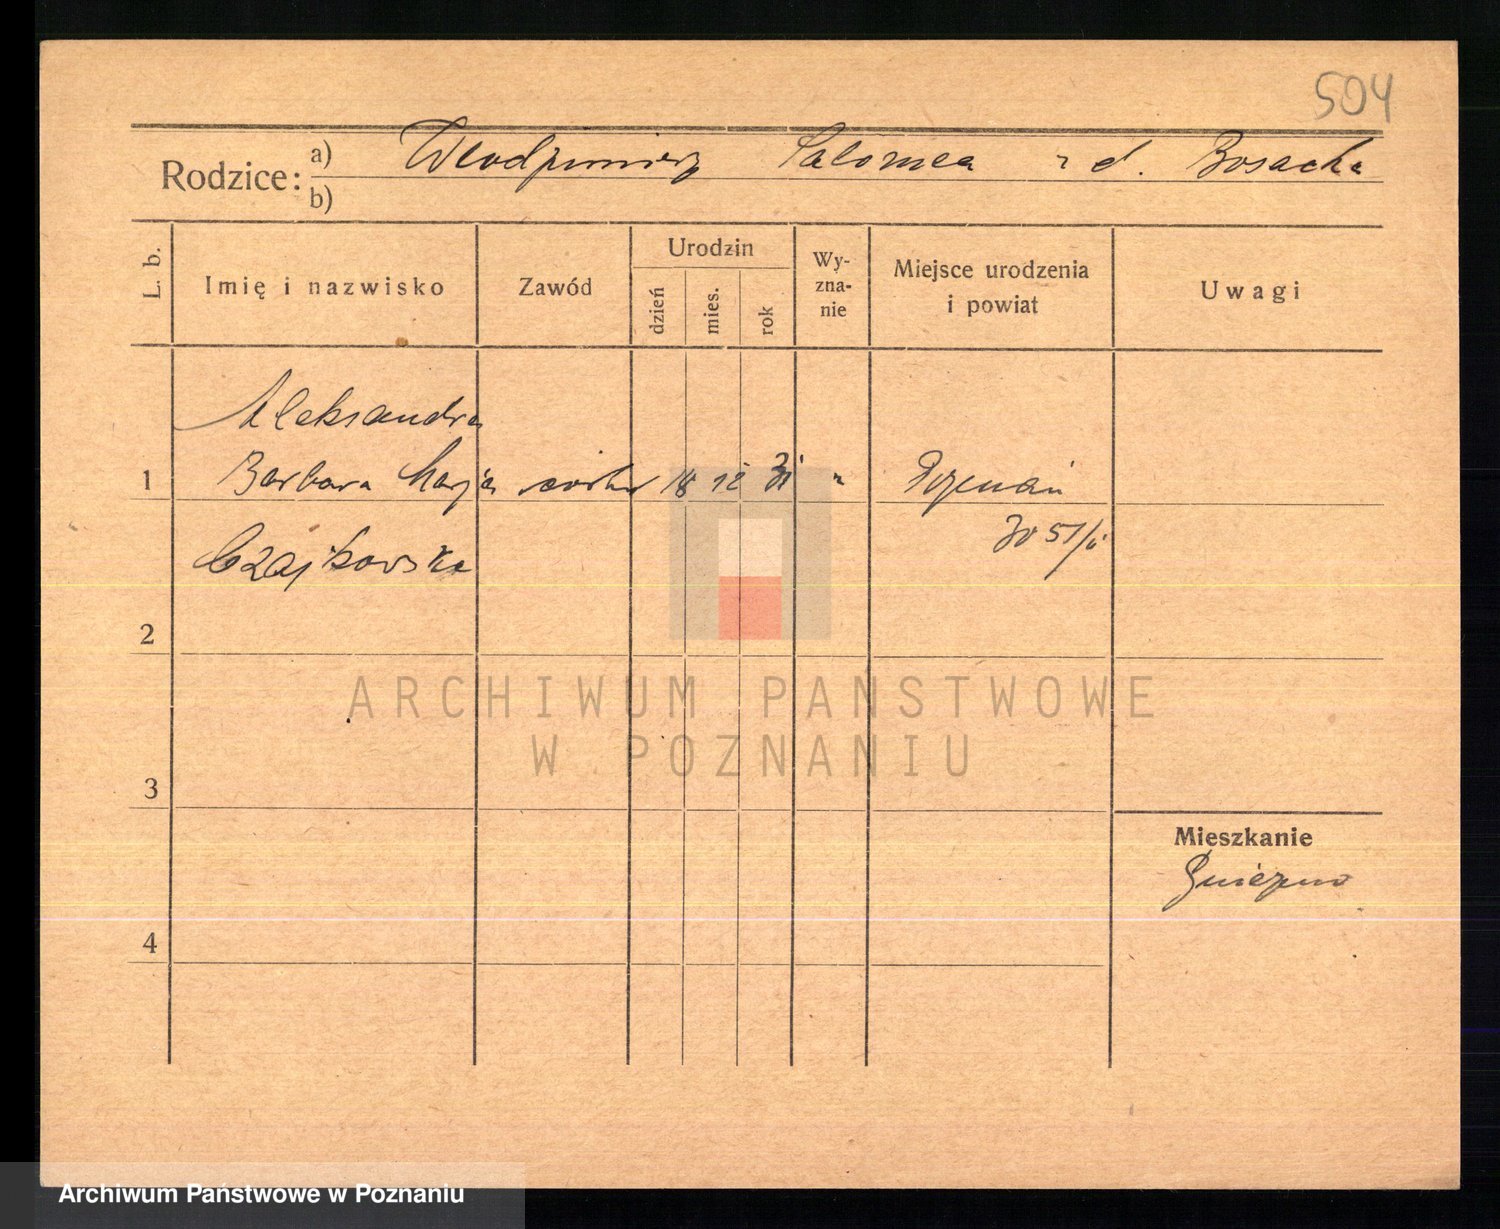 504
Rodzice: a) Włodzimierz Salomea z d. Bosacka
b)
L. b.
Imię i nazwisko
Zawód
Urodzin
dzień
mies.
rok
Wy-
zna-
nie
Miejsce urodzenia
i powiat
Uwagi
Aleksandra
1 Barbara Marja córka 18 12 31 " Poznań
Czajkowska
2
3
4
Mieszkanie
Gniezno
ARCHIWUM PAŃSTWOWE
W POZNANIU
Archiwum Państwowe w Poznaniu